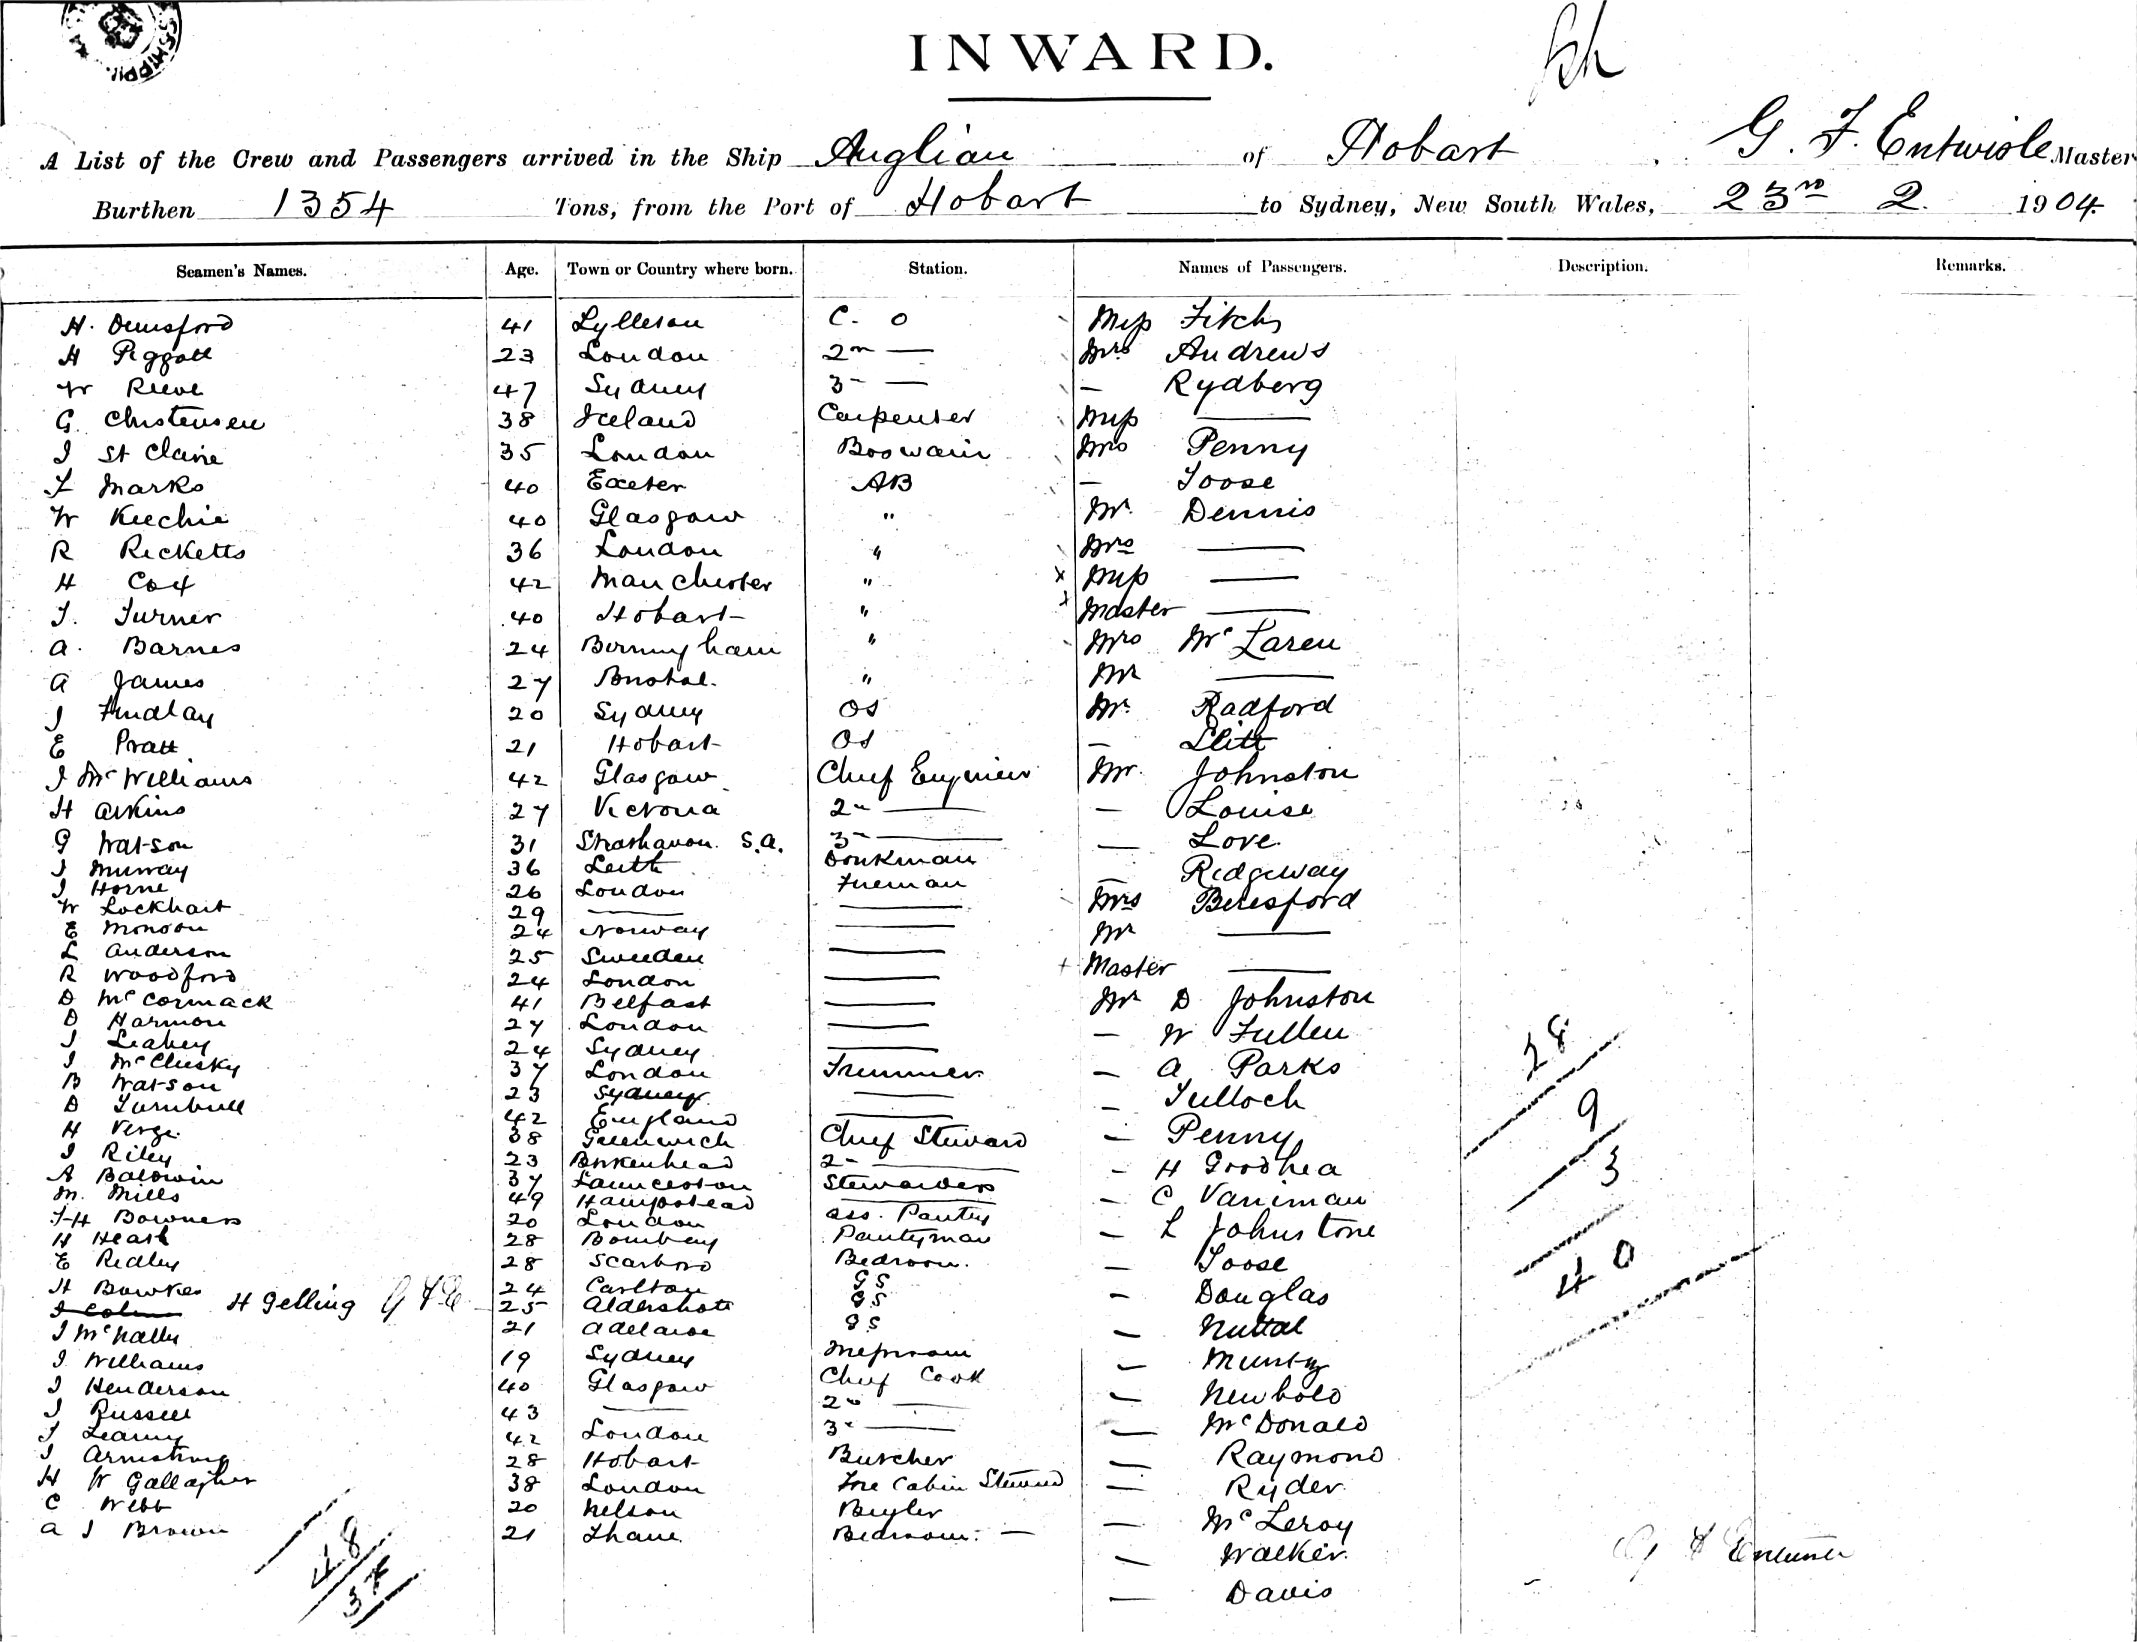 INWARD.
A List of the Crew and Passengers arrived in the Ship Anglian of Hobart G. F. Entwisle Master
Burthen 1354 Tons, from the Port of Hobart to Sydney, New South Wales, 23rd 2 1904
Seamen's Names. Age. Town or Country where born. Station. Names of Passengers. Description. Remarks.
H. Dunsford 41 C. O Miss Fitch
H Piggott 23 London 2nd — Mrs Andrews
W Reeve 47 Sydney 3 — — Rydberg
G. Christensen 38 Iceland Carpenter Miss —
J St Claire 35 London Boswain Mrs Penny
F Marks 40 Exeter AB — Toose
W Keechie 40 Glasgow " Mr. Dennis
R Ricketts 36 London " Mrs —
H Cox 42 Manchester " x Miss —
T. Turner 40 Hobart " x Master —
A. Barnes 24 Birmingham " Mrs McLaren
A James 27 Bristol. " Mr —
J Findlay 20 Sydney OS Mr. Radford
E Pratt 21 Hobart OS —
J McWilliams 42 Glasgow Chief Engineer Mr. Johnston
H Atkins 27 Victoria 2 — — Louise
G Watson 31 Strathavon S.A. 3 — — Love
J Murray 36 Leith Donkman — Ridgeway
J Horne 26 London Fireman Mrs Beresford
W Lockhart 29 — — Mr —
E Monson 24 Norway — + Master —
L Anderson 25 Sweden — Mr D Johnston
R Woodford 24 London — — W Fullen
D McCormack 41 Belfast — — A Parks
D Harmon 27 London — — Tulloch
J Leahey 24 Sydney — — Penny
J McClusky 37 London Trimmer — H Goodhea
B Watson 23 Sydney — — C Vaniman
D Turnbull 42 England — — L Johnstone
H Verge 38 Greenwich Chief Steward — Toose
J Riley 23 Birkenhead 2 — — Douglas
A Baldwin 37 Launceston Stewardess — Nuttal
M. Mills 49 Hampstead — — Muntz
F H Bowness 20 London Ass. Pantry — Newbold
H Heath 28 Bombay Pantryman — McDonald
E Ridley 28 Scarboro Bedroom. — Raymond
H Bowker 24 Carlton GS — Ryder
H Gelling G F E 25 Aldershott GS — McLeroy
J McNally 21 Adelaide GS — Walker
J Williams 19 Sydney Messroom — Davis
J Henderson 40 Glasgow Chief Cook
J Russell 43 — 2 —
J Leanny 42 London 3 —
J Armstrong 28 Hobart Butcher
H W Gallagher 38 London Fore Cabin Steward
C Webb 20 Nelson Bugler
A J Brown 21 Bedroom. —
28
9
3
40
48
G F Entwisle